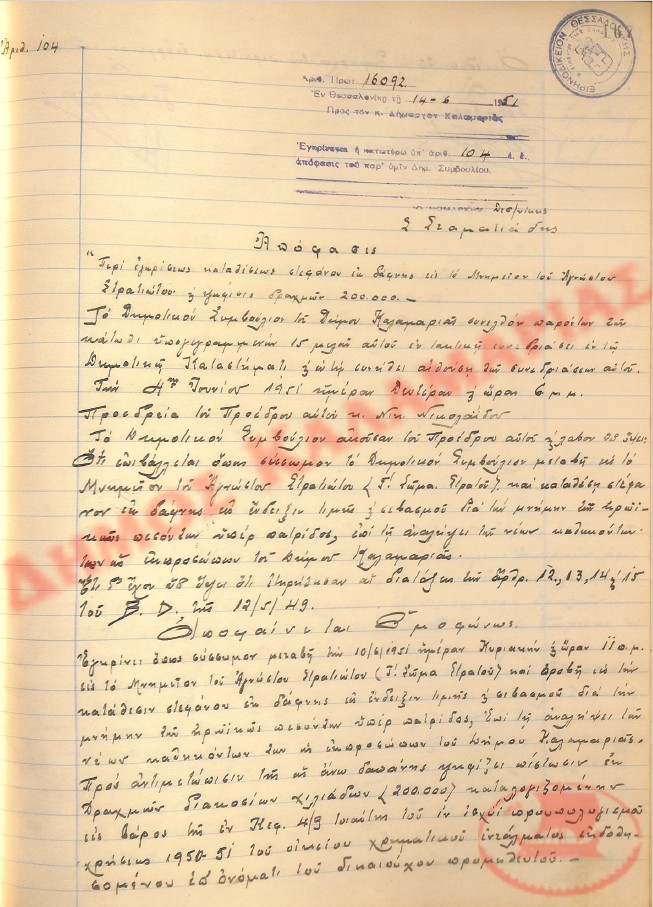 Ἀριθ. 104
167
ΕΙΡΗΝΟΔΙΚΕΙΟΝ ΘΕΣΣΑΛΟΝΙΚΗΣ
Ἀριθ. Πρωτ. 16092
Ἐν Θεσσαλονίκῃ τῇ 14-6 1951
Πρὸς τὸν κ. Δήμαρχον Καλαμαριᾶς
Ἐγκρίνεται ἡ κατωτέρω ὑπ' ἀριθ. 104 ἐ. ἔ.
ἀπόφασις τοῦ παρ' ὑμῖν Δημ. Συμβουλίου.
Σ Σταματιάδης
Ἀπόφασις
"Περὶ ἐγκρίσεως καταθέσεως στεφάνου ἐκ δάφνης εἰς τὸ Μνημεῖον τοῦ Ἀγνώστου
Στρατιώτου ψήφισις δραχμῶν 200.000.—
Τὸ Δημοτικὸν Συμβούλιον τοῦ Δήμου Καλαμαριᾶς συνελθὸν παρόντων τῶν
κάτωθι ὑπογεγραμμένων 15 μελῶν αὐτοῦ ἐν τακτικῇ συνεδριάσει ἐν τῷ
Δημοτικῷ Καταστήματι ἐν τῇ συνήθει αἰθούσῃ τῶν συνεδριάσεων αὐτοῦ.
Τὴν 4ην Ἰουνίου 1951 ἡμέραν Δευτέραν ὥραν 6 μ.μ.
Προεδρείᾳ τοῦ Προέδρου αὐτοῦ κ. Νικ. Νικολαΐδου
Τὸ Δημοτικὸν Συμβούλιον ἀκοῦσαν τοῦ Προέδρου αὐτοῦ λαβὸν ὑπ' ὄψει:
Ὅτι ἐπιβάλλεται ὅπως σύσσωμον τὸ Δημοτικὸν Συμβούλιον μεταβῇ εἰς τὸ
Μνημεῖον τοῦ Ἀγνώστου Στρατιώτου (Γ΄. Σῶμα Στρατοῦ) καὶ καταθέσῃ στέφα
νον ἐκ δάφνης εἰς ἔνδειξιν τιμῆς σεβασμοῦ διὰ τὴν μνήμην τῶν ἡρωϊ
κῶς πεσόντων ὑπὲρ πατρίδος, ἐπὶ τῇ ἀναλήψει τῶν νέων καθηκόντων
των ὡς ἐκπροσώπων τοῦ Δήμου Καλαμαριᾶς.
Ἔτι δ' ἔχον ὑπ' ὄψει ὅτι ἐτηρήθησαν αἱ διατάξεις τῶν ἄρθρ. 12, 13, 14, 15
τοῦ Β. Δ. τῆς 12/5/49.
Ἀποφαίνεται Ὁμοφώνως.
Ἐγκρίνει ὅπως σύσσωμον μεταβῇ τὴν 10/6/1951 ἡμέραν Κυριακὴν ὥραν 11 π.μ.
εἰς τὸ Μνημεῖον τοῦ Ἀγνώστου Στρατιώτου (Γ΄. Σῶμα Στρατοῦ) καὶ προβῇ εἰς τὴν
κατάθεσιν στεφάνου ἐκ δάφνης εἰς ἔνδειξιν τιμῆς σεβασμοῦ διὰ τὴν
μνήμην τῶν ἡρωϊκῶς πεσόντων ὑπὲρ πατρίδος, ἐπὶ τῇ ἀναλήψει τῶν
νέων καθηκόντων των ὡς ἐκπροσώπων τοῦ Δήμου Καλαμαριᾶς.
Πρὸς ἀντιμετώπισιν τῆς ὡς ἄνω δαπάνης ψηφίζει πίστωσιν ἐκ
Δραχμῶν διακοσίων χιλιάδων (200.000) καταλογιζομένην
εἰς βάρος τῆς ἐν Κεφ. 4/9 τοιαύτης τοῦ ἐν ἰσχύϊ προϋπολογισμοῦ
χρήσεως 1950-51 τοῦ οἰκείου χρηματικοῦ ἐντάλματος ἐκδοθη
σομένου ἐπ' ὀνόματι τοῦ δικαιούχου προμηθευτοῦ.—